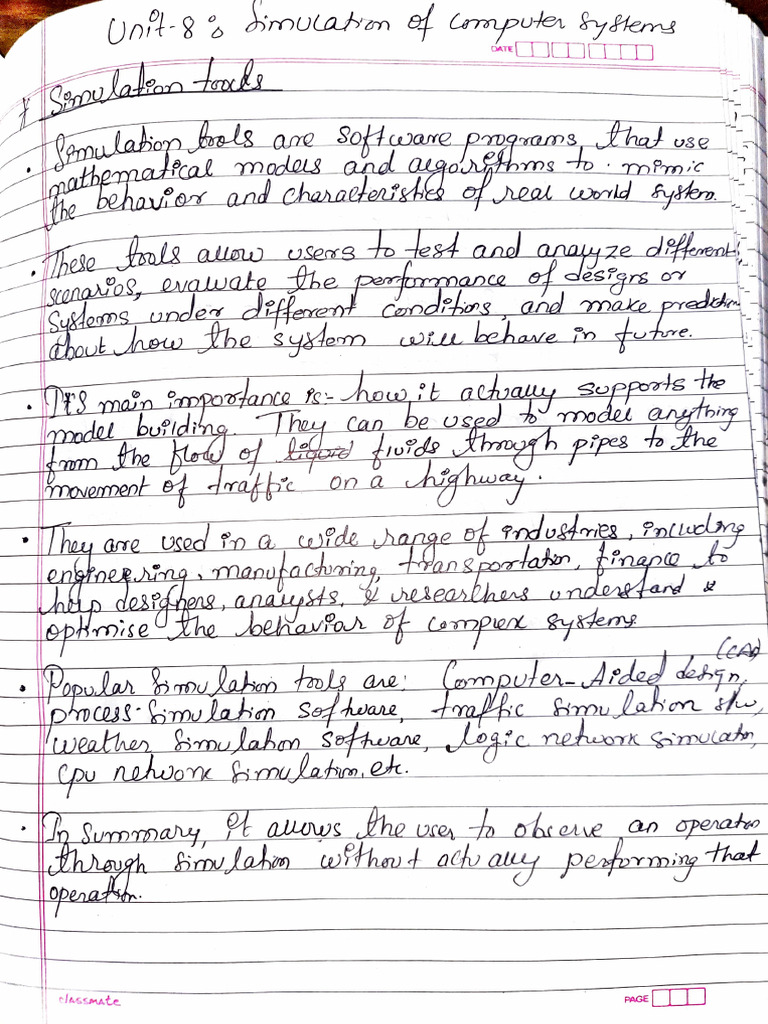 Unit-8 : Simulation of computer systems
DATE
* Simulation tools
• Simulation tools are software programs, that use
mathematical models and algorithms to mimic
the behavior and characteristics of real world system.
• These tools allow users to test and analyze different
scenarios, evaluate the performance of designs or
systems under different conditions, and make prediction
about how the system will behave in future.
• It's main importance is:- how it actually supports the
model building. They can be used to model anything
from the flow of liquid fluids through pipes to the
movement of traffic on a highway.
• They are used in a wide range of industries, including
engineering, manufacturing, transportation, finance to
help designers, analysts, & researchers understand &
optimise the behaviar of complex systems
(CAD)
• Popular simulation tools are: Computer-Aided design,
process-simulation software, traffic simulation s/w,
weather simulation software, logic network simulation,
cpu network simulation, etc.
• In summary, it allows the user to observe an operation
through simulation without actually performing that
operation.
classmate
PAGE